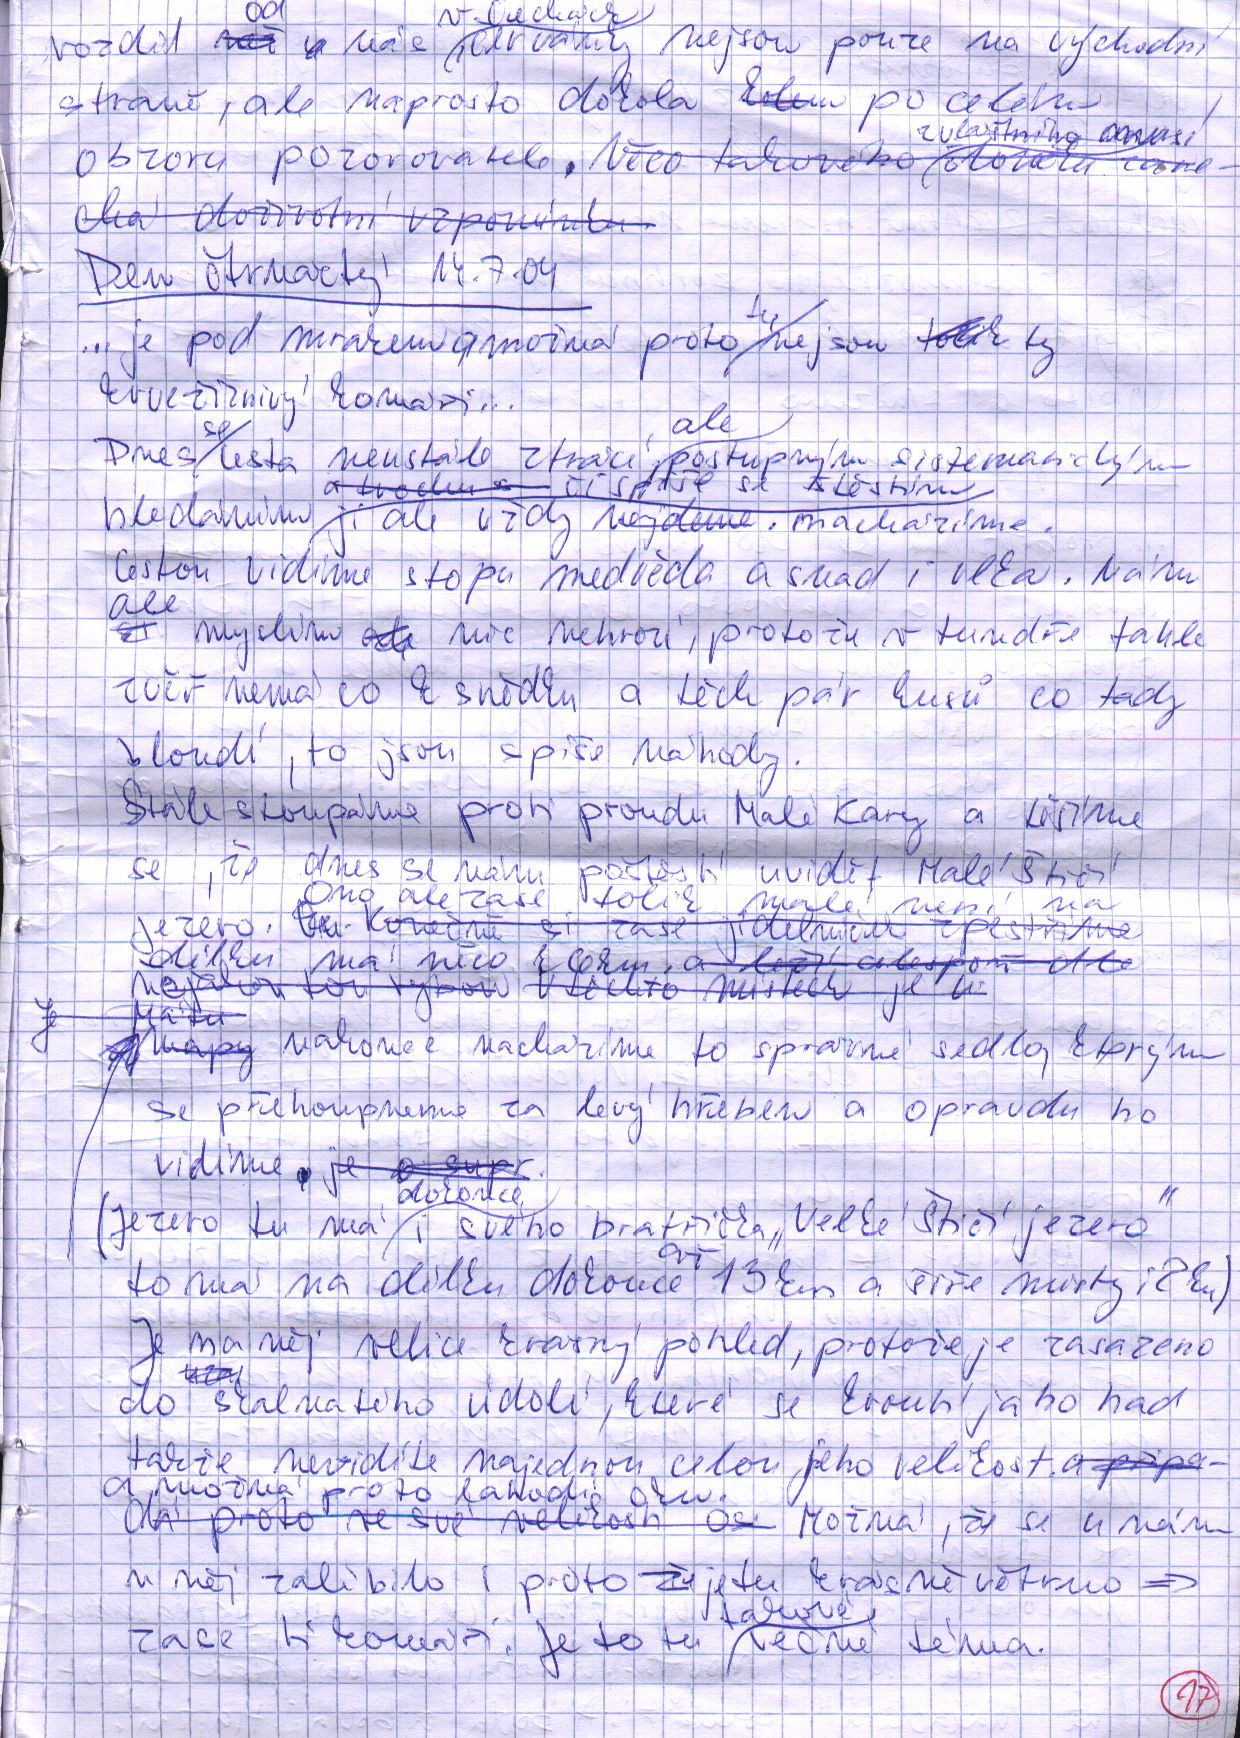 rozdíl od u nás v Čechách červánky nejsou pouze na východní
straně, ale naprosto dokola kolem po celém
obzoru pozorovatele. Něco takového zvláštního člověku zane-
chá doživotní vzpomínku.
Den čtrnáctý 14.7.04
...je pod mrakem a možná proto tu nejsou ty
krvežíznivý komáři...
Dnes se cesta neustále ztrácí, ale postupným sistematickým
a trochu s či spíše se štěstím
hledáním ji ale vždy najdeme. nacházíme.
Cestou vidíme stopu medvěda a snad i vlka. Nám
ale
myslím nic nehrozí, protože v tundře tahle
zvěř nemá co k snědku a těch pár kusů co tady
bloudí, to jsou spíše náhody.
Stále stoupáme proti proudu Malé Kary a těšíme
se, že dnes se nám poštěstí uvidět Malé Štičí
Ono ale zase tolik malé není na
jezero. Konečně si zase jídelníček zpestříme
délku má něco km. a leží alespoň dle
nějakou tou rybou v těchto místech je
mapy nakonec nacházíme to správné sedlo, kterým
se přehoupneme za levý hřeben a opravdu ho
vidíme, je o supr.
(Jezero tu má dokonce i svého bratříčka „Velké Štičí jezero"
to má na délku dokonce až 13 km a šíře místy i 2 km)
Je na něj velice krásný pohled, protože je zasazeno
do skalnatého údolí, které se kroutí jako had
takže nevidíte najednou celou jeho velikost. a připa-
a možná proto lahodí oku.
dá proto ve své velikosti Možná, že se u nám
u něj zalíbilo i proto že je tu krásně větrno ⇒
zase ti komáři. Je to tu takové věčné téma.
17